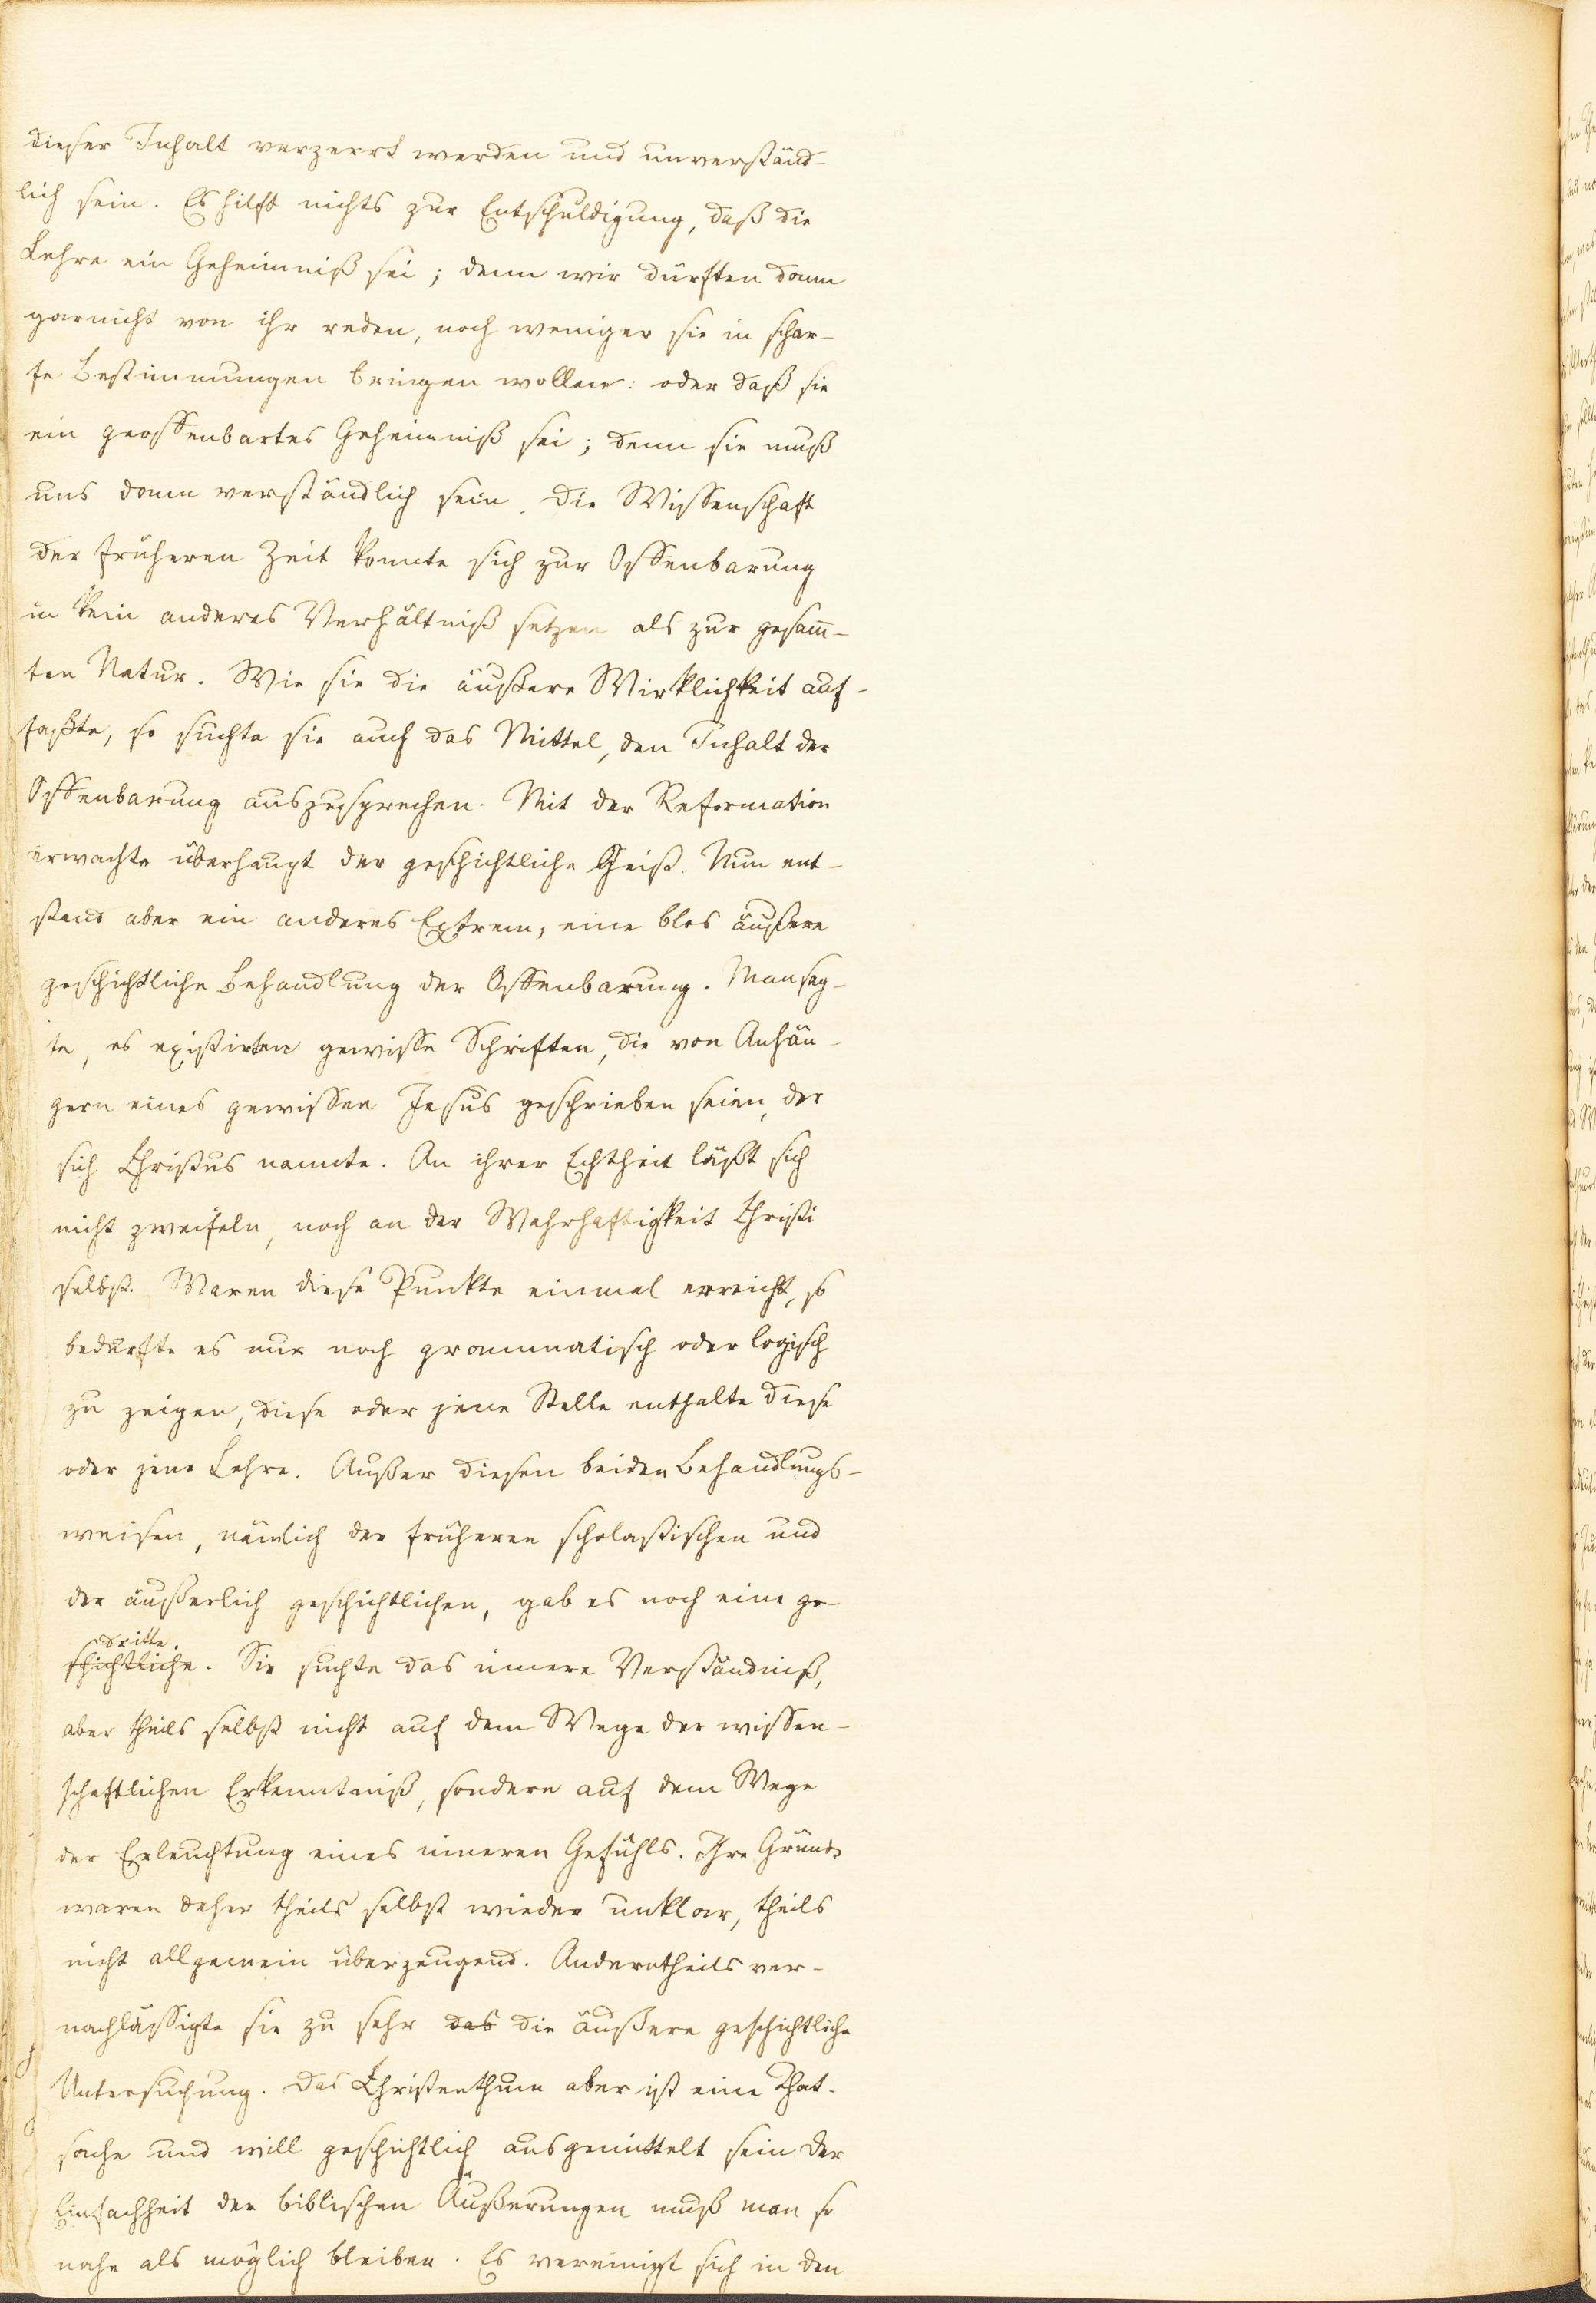 dieser Inhalt verzerrt werden und unverständ-
lich sein. Es hilft nichts zur Entschuldigung, daß die
Lehre ein Geheimniß sei; denn wir dürften dann
garnicht von ihr reden, noch weniger sie in schar-
fe Bestimmungen bringen wollen: oder daß sie
ein geoffenbartes Geheimniß sei; denn sie muß
uns dann verständlich sein. Die Wissenschaft
der früheren Zeit konnte sich zur Offenbarung
in kein anderes Verhältniß setzen als zur gesam̄-
ten Natur. Wie sie die äußere Wirklichkeit auf-
faßte, so suchte sie auch das Mittel, den Inhalt der
Offenbarung auszusprechen. Mit der Reformation
erwachte überhaupt der geschichtliche Geist. Nun ent-
stand aber ein anderes Extrem, eine blos äußere
geschichtliche Behandlung der Offenbarung. Man sag-
te, es existirten gewisse Schriften, die von Anhän-
gern eines gewissen Jesus geschrieben seien, der
sich Christus nannte. An ihrer Echtheit läßt sich
nicht zweifeln, noch an der Wahrhaftigkeit Christi
selbst. Waren diese Punkte einmal erreicht, so
bedurfte es nur noch grammatisch oder logisch
zu zeigen, diese oder jene Stelle enthalte diese
oder jene Lehre. Außer diesen beiden Behandlungs-
weisen, nämlich der früheren scholastischen und
der äußerlich geschichtlichen, gab es noch eine ge-
dritte.
schichtliche. Sie suchte das innere Verständniß,
aber theils selbst nicht auf dem Wege der wissen-
schaftlichen Erkenntniß, sondern auf dem Wege
der Erleuchtung eines inneren Gefühls. Ihre Gründe
waren daher theils selbst wieder unklar, theils
nicht allgemein überzeugend. Anderntheils ver-
nachlässigte sie zu sehr das die äußere geschichtliche
Untersuchung. Das Christenthum aber ist eine That-
sache und will geschichtlich ausgemittelt sein. Der
Einfachheit der biblischen Äußerungen muß man so
nahe als möglich bleiben. Es vereinigt sich in den